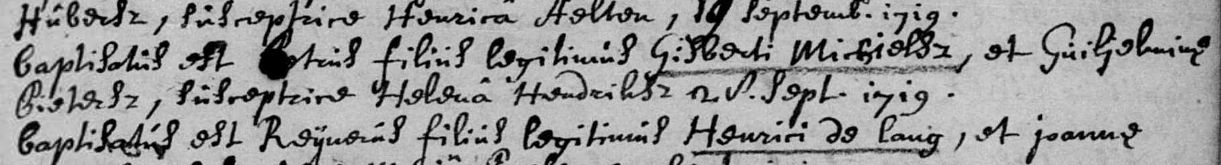 Hübertz, süsceptrice Henricâ Aelten, 19 septemb. 1719.
baptisatüs est petrüs filiüs legitimüs Gisberti Michielsz, et Guilielminę
Pietersz, süsceptrice Helenâ Hendriksz 28. sept. 1719.
baptisatüs est Reÿnerüs filiüs legitimüs Henrici de lang, et joannę